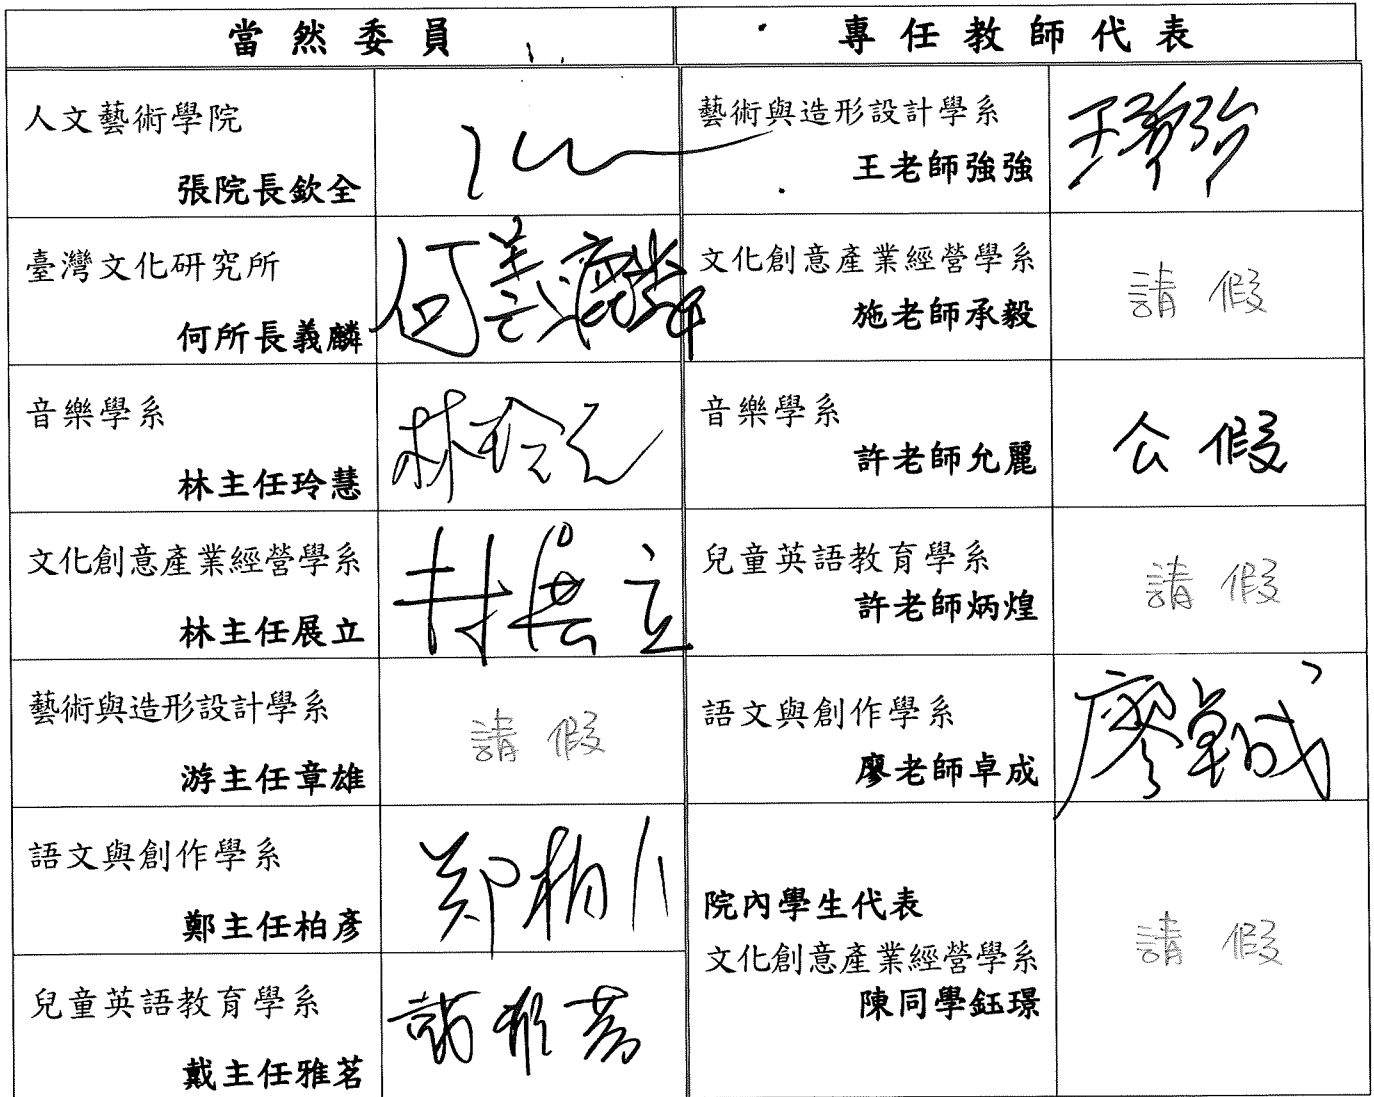 當然委員
專任教師代表
人文藝術學院
張院長欽全
藝術與造形設計學系
王老師強強
臺灣文化研究所
何所長義麟
何義麟
文化創意產業經營學系
施老師承毅
請假
音樂學系
林主任玲慧
音樂學系
許老師允麗
公假
文化創意產業經營學系
林主任展立
林展立
兒童英語教育學系
許老師炳煌
請假
藝術與造形設計學系
游主任章雄
請假
語文與創作學系
廖老師卓成
廖卓成
語文與創作學系
鄭主任柏彥
院內學生代表
文化創意產業經營學系
陳同學鈺璟
請假
兒童英語教育學系
戴主任雅茗